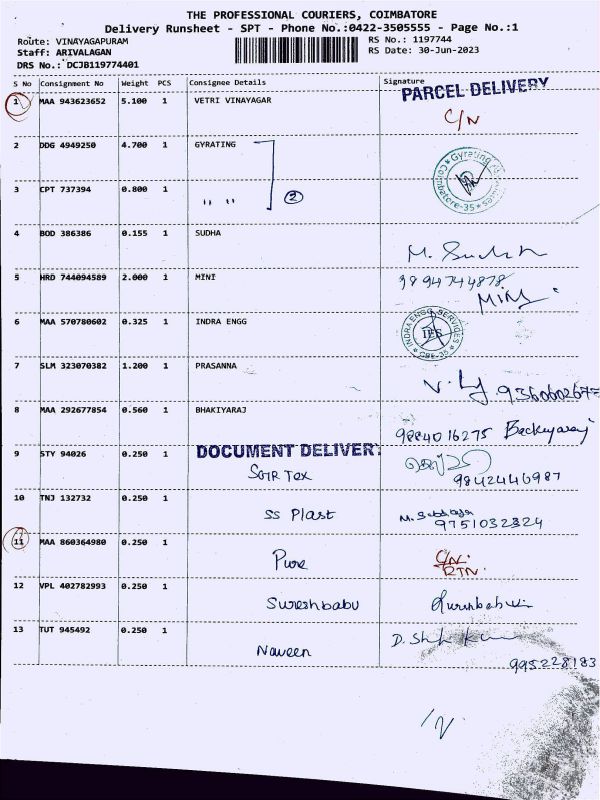 THE PROFESSIONAL COURIERS, COIMBATORE
Delivery Runsheet - SPT - Phone No.:0422-3505555 - Page No.:1
Route: VINAYAGAPURAM RS No.: 1197744
Staff: ARIVALAGAN RS Date: 30-Jun-2023
DRS No.: DCJB119774401
S No Consignment No Weight PCS Consignee Details Signature
PARCEL DELIVERY
1 MAA 943623652 5.100 1 VETRI VINAYAGAR C/N
2 DDG 4949250 4.700 1 GYRATING
3 CPT 737394 0.800 1 " " 2
4 BOD 386386 0.155 1 SUDHA M. Sudha
5 HRD 744094589 2.000 1 MINI 3894744878
MINI
6 MAA 570780602 0.325 1 INDRA ENGG INDRA ENGG SERVICES IES CBE-35
7 SLM 323070382 1.200 1 PRASANNA
8 MAA 292677854 0.560 1 BHAKIYARAJ 9884016275 Backiyaraj
9 STY 94026 0.250 1 DOCUMENT DELIVERY
9842446987
10 TNJ 132732 0.250 1 SS Plast
9751032324
11 MAA 860364980 0.250 1 Pure C/N.
RTN.
12 VPL 402782993 0.250 1 Sureshbabu
13 TUT 945492 0.250 1 Naveen
995228183